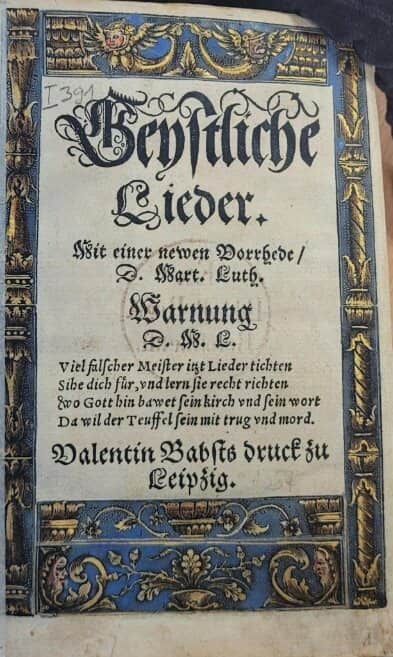 I 391
Geystliche
Lieder.
Mit einer newen Vorrhede/
D. Mart. Luth.
Warnung
D. M. L.
Viel falscher Meister itzt Lieder tichten
Sihe dich für, vnd lern sie recht richten
Wo Gott hin bawet sein kirch vnd sein wort
Da wil der Teuffel sein mit trug vnd mord.
Valentin Babsts druck zu
Leipzig.